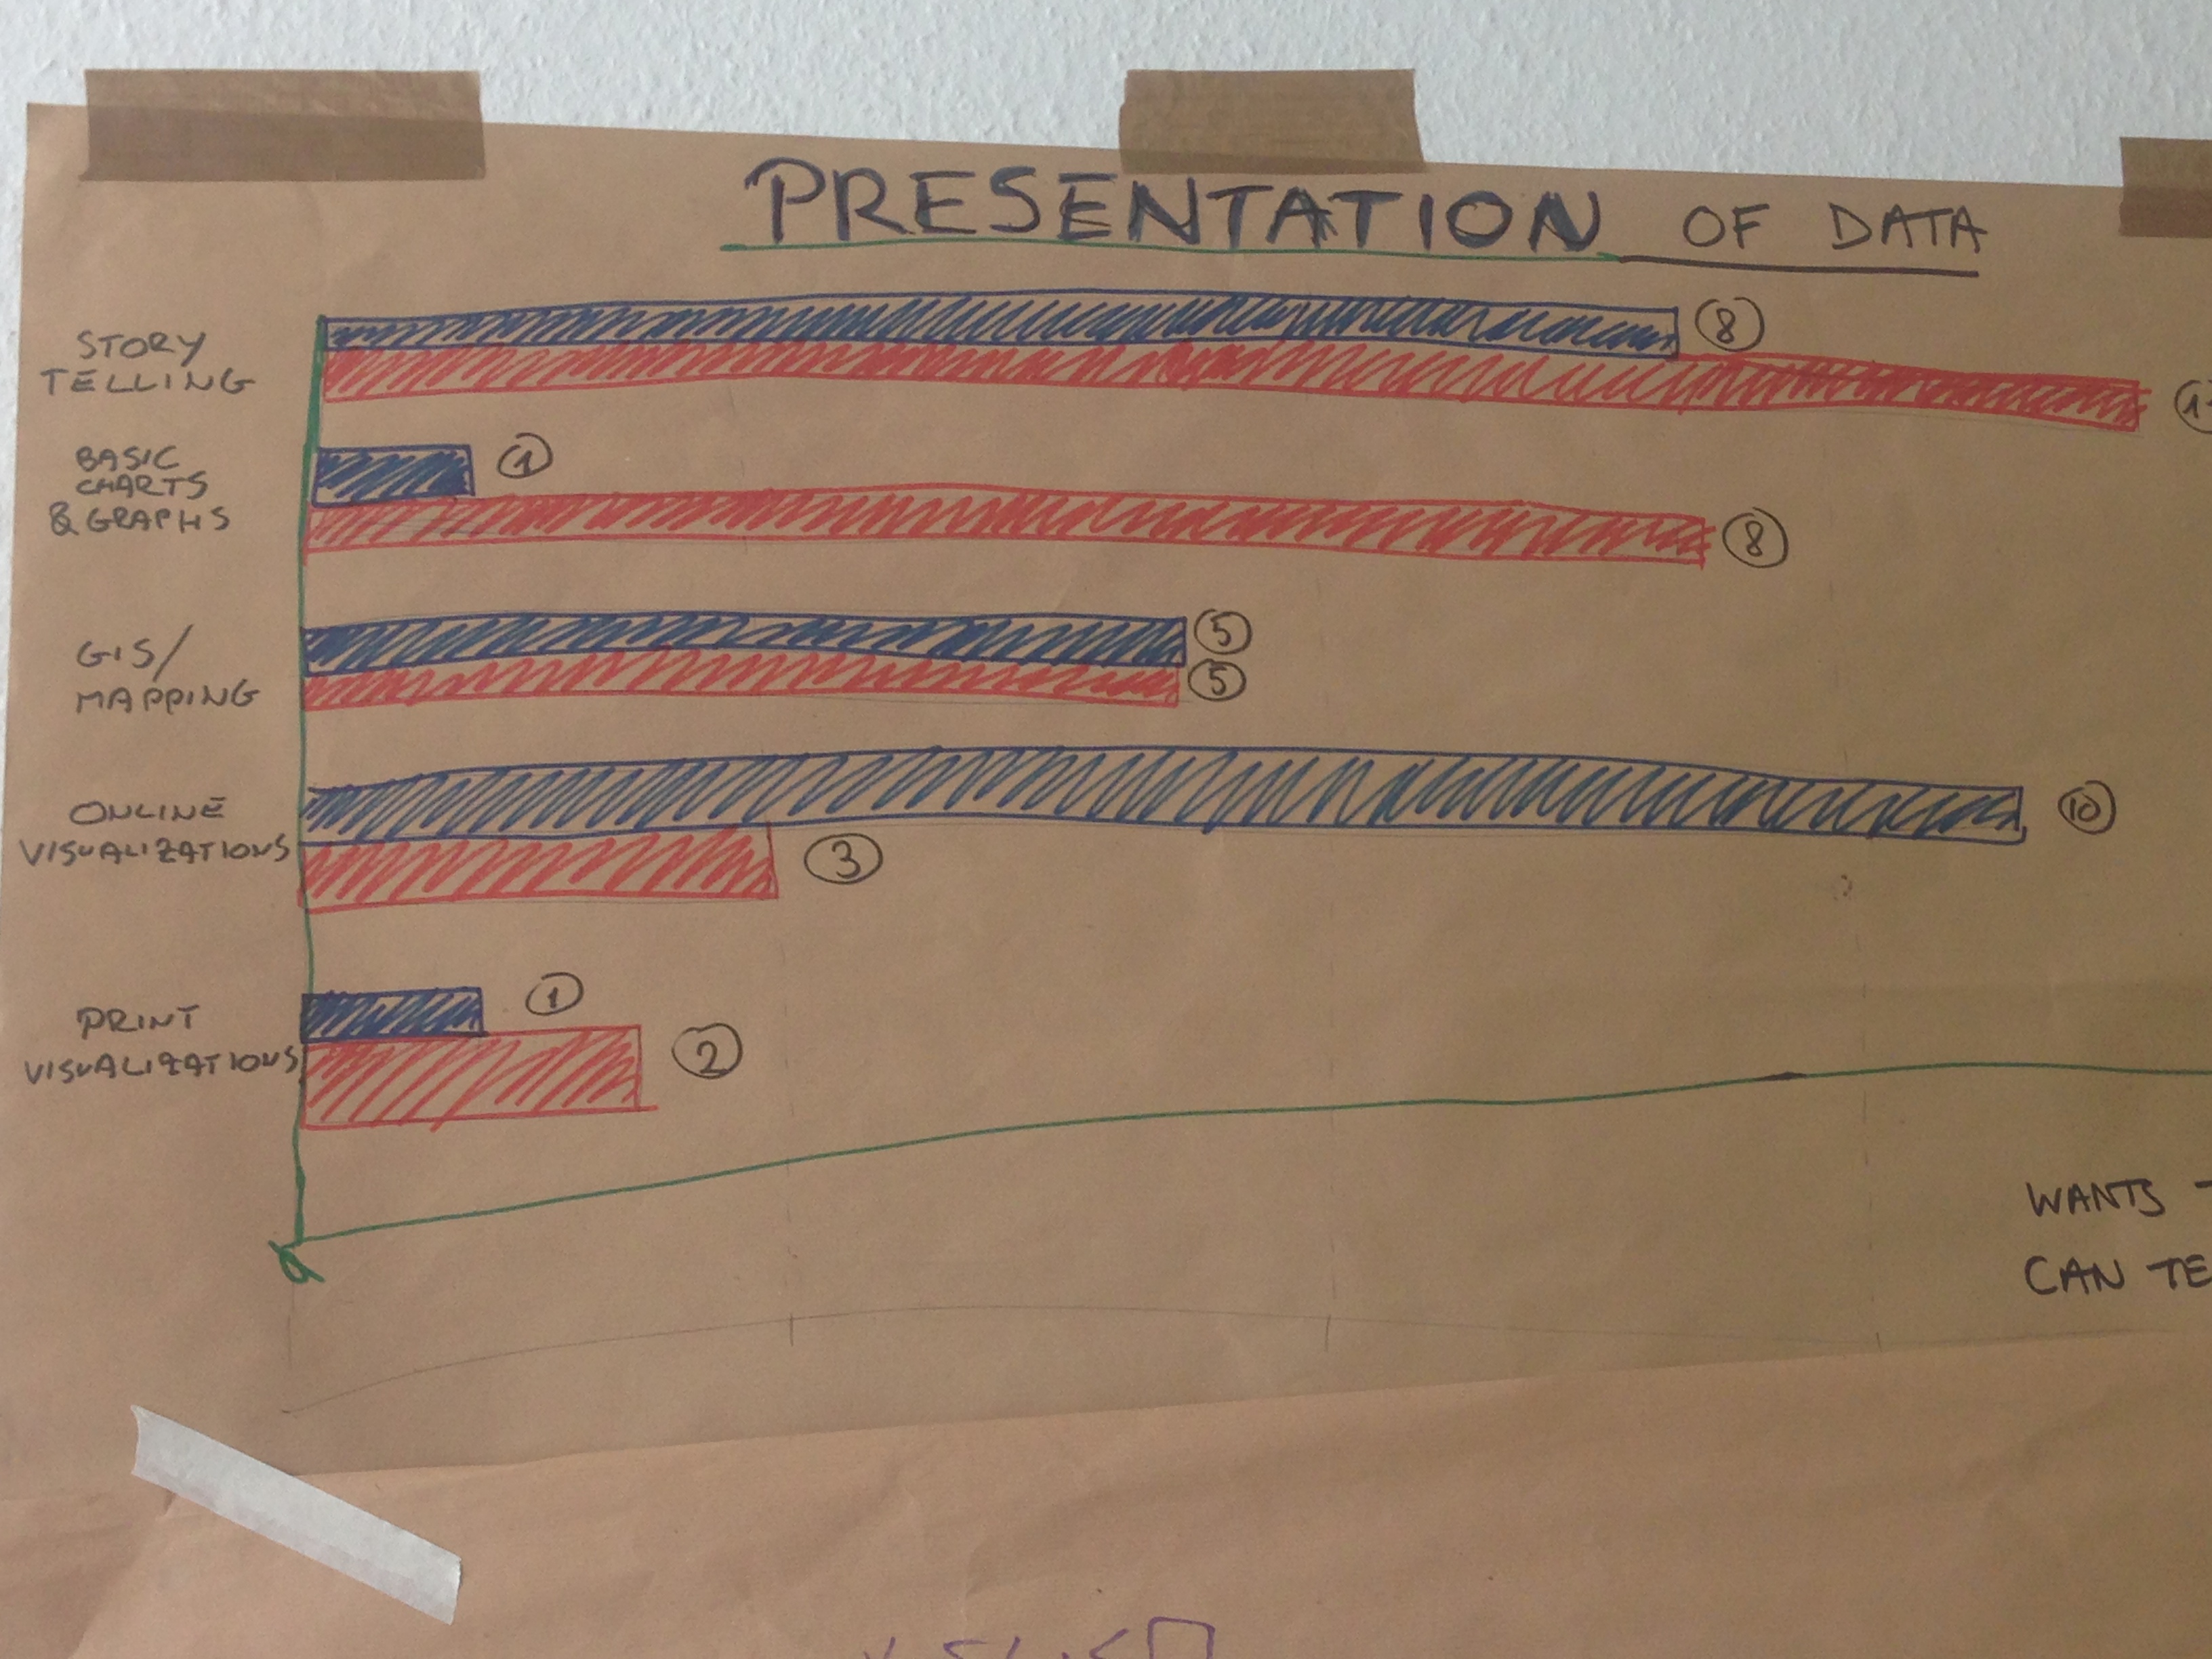 PRESENTATION OF DATA
STORY
TELLING
8
BASIC
CHARTS
& GRAPHS
1
8
GIS/
MAPPING
5
5
ONLINE
VISUALIZATIONS
10
3
PRINT
VISUALIZATIONS
1
2
WANTS
CAN